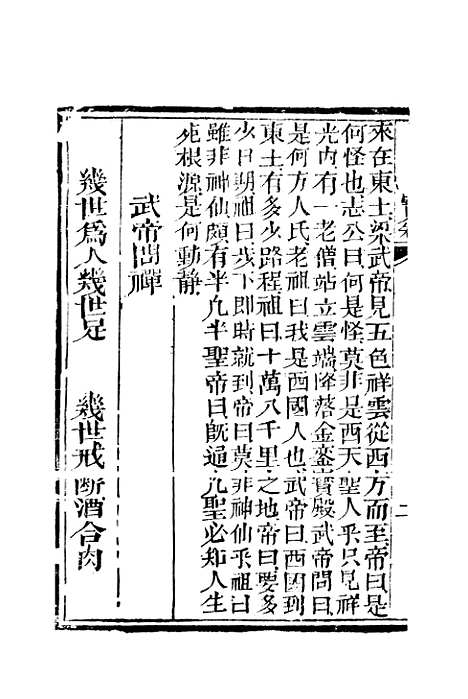 來在東土梁武帝見五色祥雲從西方而至帝曰是
何怪也志公曰何是怪莫非是西天聖人乎只見祥
光內有一老僧站立雲端降落金鑾寶殿武帝問曰
是何方人氏老祖曰我是西國人也武帝曰西國到
東土有多少路程祖曰十萬八千里之地帝曰要多
少日期祖曰我下即時就到帝曰莫非神仙乎祖曰
雖非神仙頗有半凡半聖帝曰既通凡聖必知人生
死根源是何動静
武帝問禪
幾世爲人幾世足 幾世戒断酒合肉
二